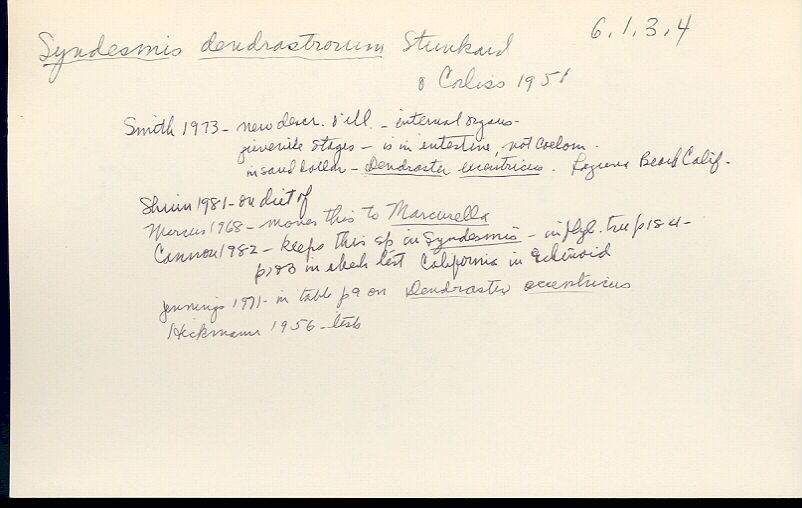 Syndesmis dendrastrorum Stunkard 6.1.3.4
& Corliss 1951
Smith 1973 - new descr. & ill. - internal organs -
juvenile stages - is in intestine, not coelom.
in sand dollar - Dendraster excentricus. Laguna Beach Calif.
Shinn 1981 - on diet of
Marcus 1968 - moves this to Marcusella
Cannon 1982 - keeps this sp in Syndesmis - in phyl. tree p184 -
p183 in check list California in Echinoid
Jennings 1971 - in table p9 on Dendraster excentricus
Hickmann 1956 - lists